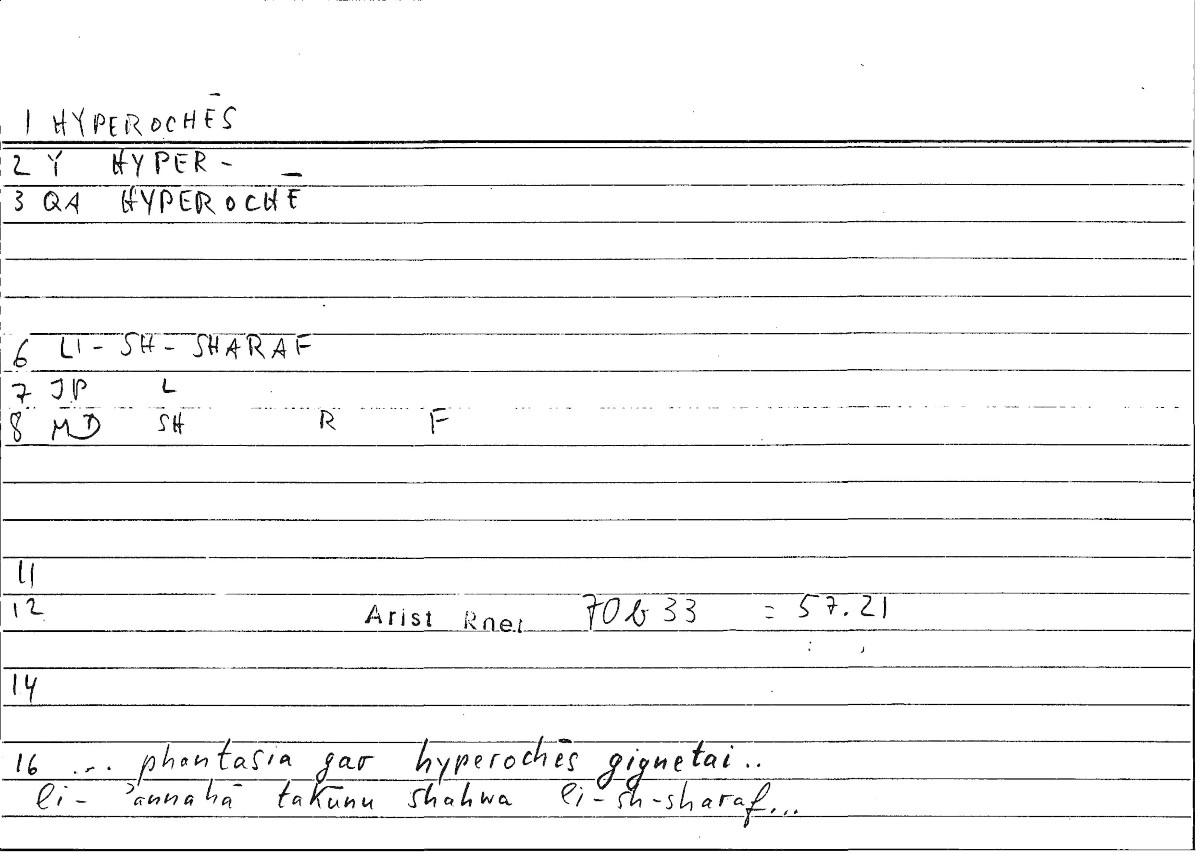 1 HYPEROCHĒS
2 Y HYPER -
3 QA HYPEROCHĒ
6 LI - SH - SHARAF
7 JP L
8 MD SH R F
11
12 Arist Rhet 70b33 = 57.21
14
16 ... phantasia gar hyperochēs gignetai..
li- ʾannahā takūnu shahwa li-sh-sharaf...